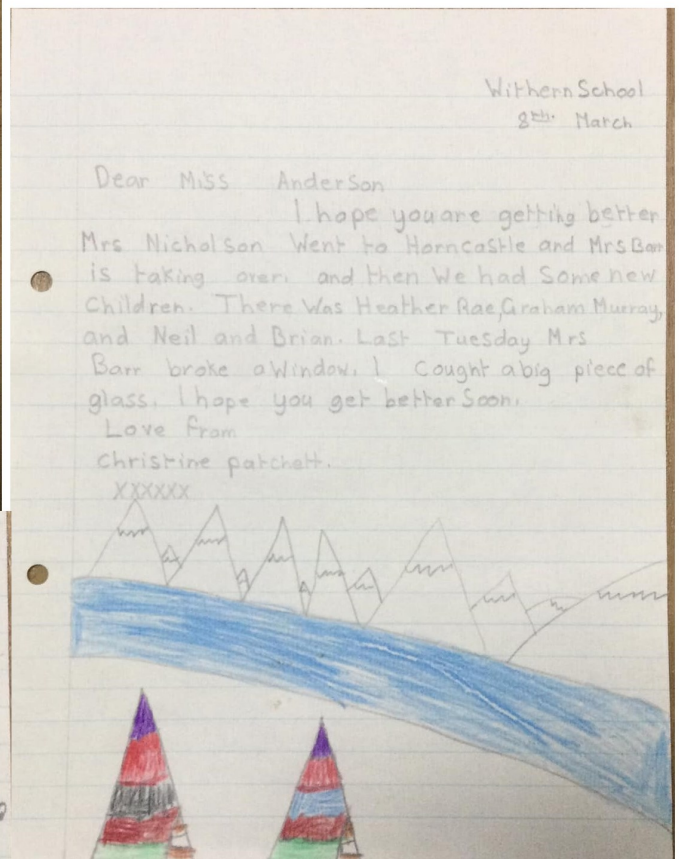 Withern School
8th. March
Dear Miss Anderson
I hope you are getting better
Mrs Nicholson Went to Horncastle and Mrs Barr
is taking over. and then We had Some new
Children. There Was Heather Rae, Graham Murray,
and Neil and Brian. Last Tuesday Mrs
Barr broke a Window. I Cought a big piece of
glass. I hope you get better Soon.
Love from
Christine patchett.
XXXXXX